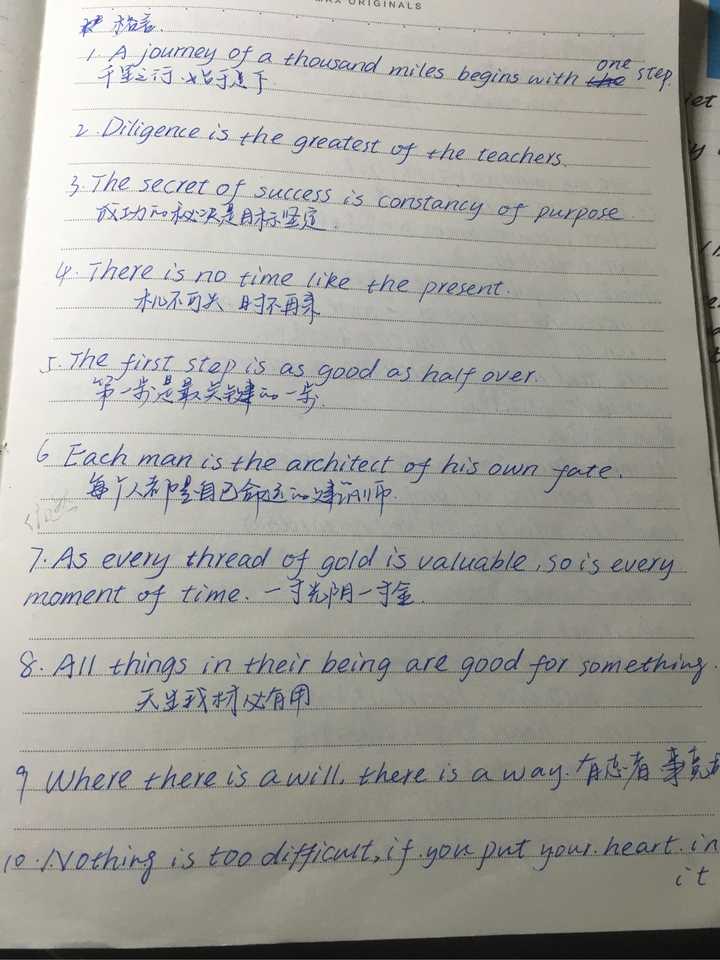 ORIGINALS
格言.
1. A journey of a thousand miles begins with one step.
千里之行.始于足下
2. Diligence is the greatest of the teachers.
3. The secret of success is constancy of purpose.
成功的秘决是目标坚定.
4. There is no time like the present.
机不可失 时不再来
5. The first step is as good as half over.
第一步是最关键的一步.
6 Each man is the architect of his own fate.
每个人都是自己命运的建筑师.
7. As every thread of gold is valuable, so is every
moment of time. 一寸光阴一寸金.
8. All things in their being are good for something.
天生我材必有用
9 Where there is a will, there is a way. 有志者 事竟成
10. Nothing is too difficult, if you put your heart in
it